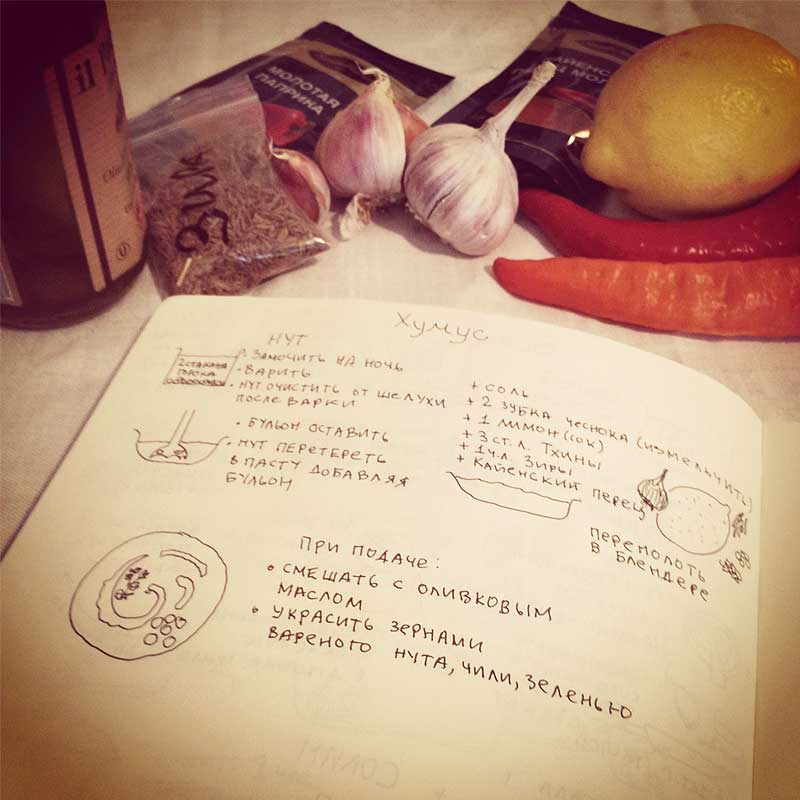 il
МОЛОТАЯ
ПАПРИКА
ЗИРА
Хумус
НУТ
2 СТАКАНА
ГОРОХА
• ЗАМОЧИТЬ НА НОЧЬ
• ВАРИТЬ
• НУТ ОЧИСТИТЬ ОТ ШЕЛУХИ
ПОСЛЕ ВАРКИ
• БУЛЬОН ОСТАВИТЬ
• НУТ ПЕРЕТЕРЕТЬ
В ПАСТУ ДОБАВЛЯЯ
БУЛЬОН
+ СОЛЬ
+ 2 ЗУБКА ЧЕСНОКА (ИЗМЕЛЬЧИТЬ)
+ 1 ЛИМОН (СОК)
+ 3 СТ. Л. ТХИНЫ
+ 1 Ч.Л. ЗИРЫ
+ КАЙЕНСКИЙ ПЕРЕЦ
ПЕРЕМОЛОТЬ
В БЛЕНДЕРЕ
ПРИ ПОДАЧЕ:
• СМЕШАТЬ С ОЛИВКОВЫМ
МАСЛОМ
• УКРАСИТЬ ЗЕРНАМИ
ВАРЕНОГО НУТА, ЧИЛИ, ЗЕЛЕНЬЮ